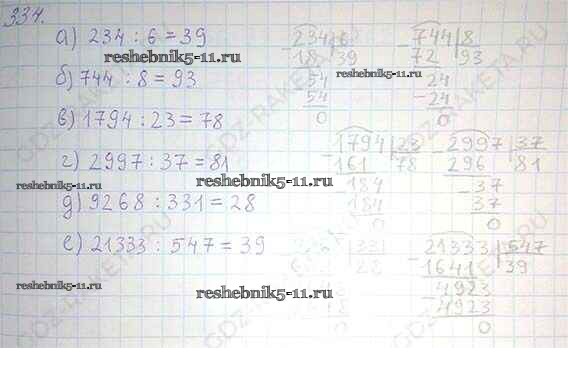 334.
а) 234 : 6 = 39
б) 744 : 8 = 93
в) 1794 : 23 = 78
г) 2997 : 37 = 81
д) 9268 : 331 = 28
е) 21333 : 547 = 39
234 6
18 39
54
54
0
744 8
72 93
24
24
0
1794 23
161 78
184
184
0
2997 37
296 81
37
37
0
331
28
0
21333 547
1641 39
4923
4923
0
reshebnik5-11.ru
reshebnik5-11.ru
reshebnik5-11.ru
reshebnik5-11.ru
reshebnik5-11.ru
reshebnik5-11.ru
GDZ-RAKETA.RU